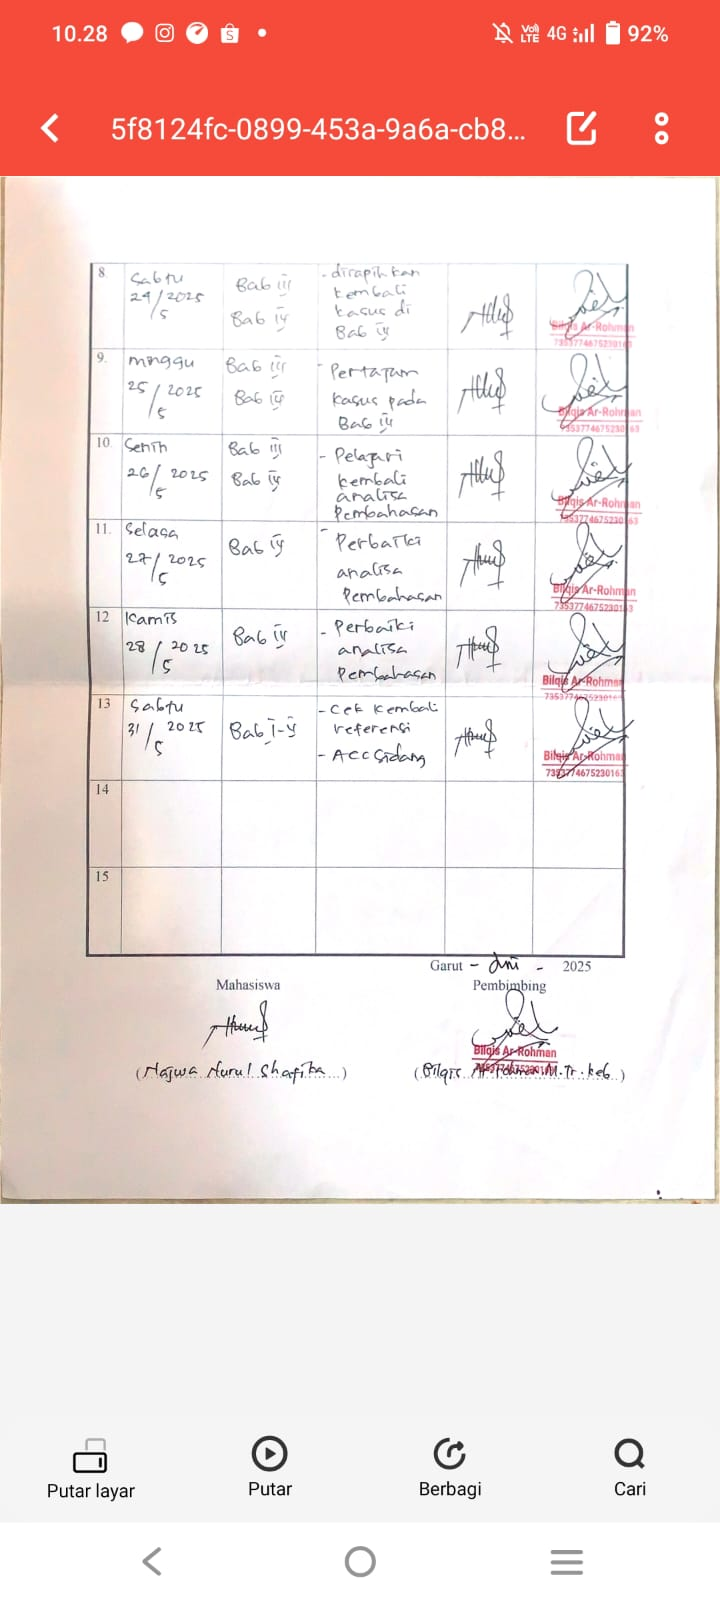 10.28
4G 92%
5f8124fc-0899-453a-9a6a-cb8...
8. Sabtu 24/5 2025 Bab III Bab IV - dirapihkan kembali kasus di Bab IV
Bilqis Ar-Rohman
7353774675230163
9. Minggu 25/5 2025 Bab III Bab IV - Pertajam kasus pada Bab IV
Bilqis Ar-Rohman
7353774675230163
10. Senin 26/5 2025 Bab III Bab IV - Pelajari kembali analisa Pembahasan
Bilqis Ar-Rohman
7353774675230163
11. Selasa 27/5 2025 Bab IV - Perbaiki analisa Pembahasan
Bilqis Ar-Rohman
7353774675230163
12 Kamis 28/5 2025 Bab IV - Perbaiki analisa Pembahasan
Bilqis Ar-Rohman
7353774675230163
13 Sabtu 31/5 2025 Bab I-V - Cek kembali referensi - ACC Sidang
Bilqis Ar-Rohman
7353774675230163
14
15
Garut - Juni - 2025
Mahasiswa Pembimbing
Bilqis Ar-Rohman
(Najwa Nurul Shafira) (Bilqis Ar-Rohman M.Tr.Keb)
Putar layar Putar Berbagi Cari